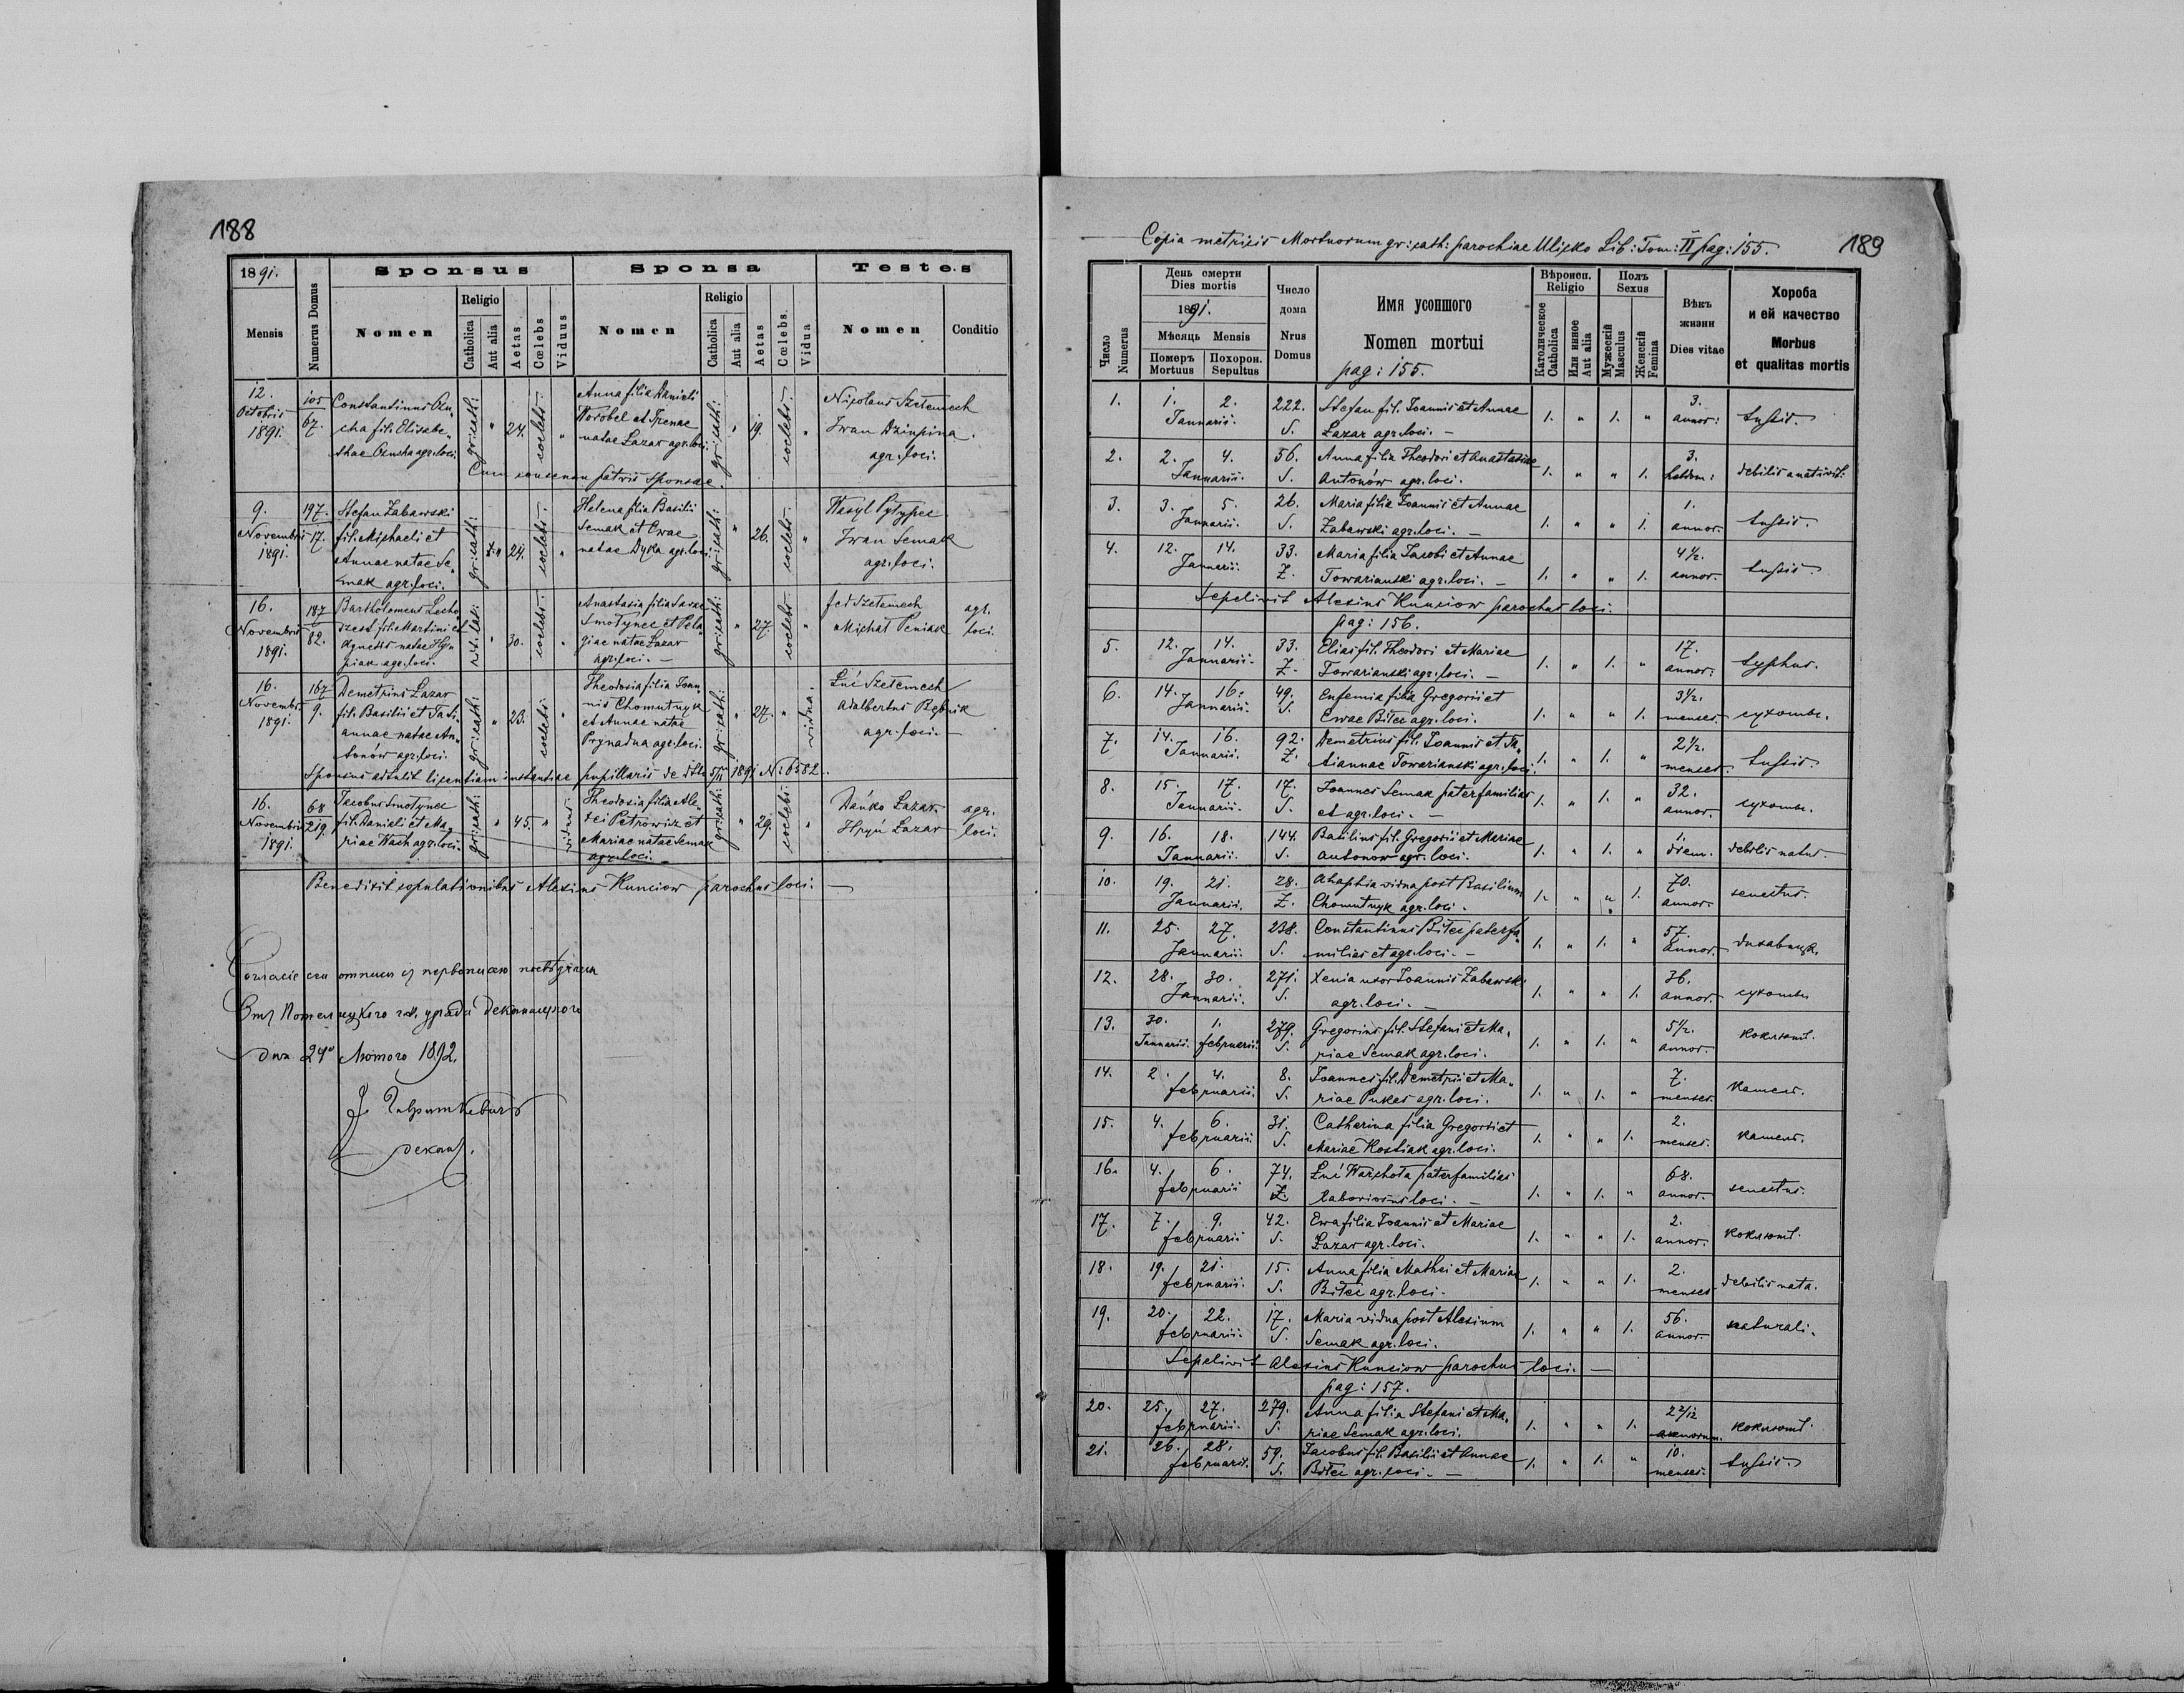 188
1891.
Sponsus
Sponsa
Testes
Mensis
Numerus Domus
Nomen
Religio
Catholica
Aut alia
Aetas
Cœlebs
Viduus
Nomen
Religio
Catholica
Aut alia
Aetas
Cœlebs.
Vidua
Nomen
Conditio
12. Octobris 1891.
105
67.
Constantinus
cha fil. Elisabe„
thae agr. loci.
gr: cath:
"
24.
coelebs.
"
Anna filia Danieli
Worobel et Irenae
natae Łazar agr. loci.
gr: cath:
"
19.
coelebs.
"
Nicolaus Szełemech
Iwan Dzinpina.
agr. loci.
Cum consensu patris sponsae.
9. Novembris 1891.
197.
17.
Stefan Zabawski
fil. Michaeli et
Annae natae Se„
mak agr. loci.
gr: cath:
24.
coelebs.
"
Helena filia Basilii
Semak et Ewae
natae Dyka agr. loci.
gr: cath:
"
26.
coelebs.
"
Wasyl Pytypec
Iwan Semak
agr. loci.
16. Novembris 1891.
187
82.
Bartholomeus
fil. Martini et
Agnetis natae
agr. loci.
rit. lat:
"
30.
coelebs.
"
Anastasia filia
Smołynec et Pela„
giae natae Łazar
agr. loci. —
gr: cath:
"
27.
coelebs.
"
Fed Szełemech
Michał Peniak
agr.
loci.
16. Novembris 1891.
167
9.
Demetrius Łazar
fil. Basilii et Tati„
annae natae An„
tonów agr. loci.
gr: cath:
"
23.
coelebs.
"
Theodosia filia Ioan„
nis Chomutnyk
et Annae natae
Prynadna agr. loci.
gr: cath:
"
27.
"
vidua.
Łuć Szełemech
Adalbertus Rębnik
agr. loci.
Sponsus attulit licentiam instantiae pupillaris de dto 5/11 1891 N: 6582.
16. Novembris 1891.
68
219.
Iacobus Smołynec
fil. Danieli et Ma„
riae Wach agr. loci.
gr: cath:
"
45.
"
viduus.
Theodosia filia Ale„
xei Petrowicz et
Mariae natae Semak
agr. loci.
gr: cath:
"
29.
coelebs.
"
Dańko Łazar
Hryń Łazar
agr.
loci.
Benedixit copulationibus Alexius Kunciow parochus loci. —
Дня 24го Лютого 1892.
декан.
189
Copia metricis Mortuorum gr: cath: parochiae Ulicko Lib: Tom: II pag: 155.
Число
Numerus
День смерти
Dies mortis
1891.
Мѣсяць Mensis
Померъ
Mortuus
Похорон.
Sepultus
Число
дома
Nrus
Domus
Имя усопшого
Nomen mortui
pag: 155.
Вѣроисп.
Religio
Католическое
Catholica
Или инное
Aut alia
Полъ
Sexus
Мужескій
Masculus
Женскій
Femina
Вѣкъ
жизни
Dies vitae
Хороба
и ей качество
Morbus
et qualitas mortis
1. 1. 2. 222. Stefan fil. Ioannis et Annae 1. " 1. " 3.
Ianuarii. S. Łazar agr. loci. — annor: tussis.
2. 2. 4. 56. Anna filia Theodori et Anastasiae 1. " " 1. 3.
Januarii. S. Antonów agr. loci. hebdom: debilis a nativit:
3. 3. 5. 26. Maria filia Ioannis et Annae 1. " " 1. 1.
Januarii. S. Zabawski agr. loci. — annor. tussis.
4. 12. 14. 33. Maria filia Iacobi et Annae 1. " " 1. 4½.
Januarii. Z. Towarianski agr. loci. — annor. tussis.
Sepelivit Alexius Kunciow parochus loci.
pag: 156.
5. 12. 14. 33. Elias fil. Theodori et Mariae 1. " 1. " 17.
Januarii. Z. Towarianski agr. loci. — annor. typhus.
6. 14. 16. 49. Eufemia filia Gregorii et 1. " " 1. 3½.
Januarii. S. Ewae Biłec agr. loci. menses. сухоты.
7. 14. 16. 92. Demetrius fil. Ioannis et Ta„ 1. " 1. " 2½.
Ianuarii. Z. tiannae Towarianski agr. loci. menses. tussis.
8. 15. 17. 17. Ioannes Semak paterfamilias 1. " 1. " 32.
Ianuarii. S. et agr. loci. — annor. сухоты.
9. 16. 18. 144. Basilius fil. Gregorii et Mariae 1. " 1. " 1.
Ianuarii. S. Antonow agr. loci. diem. debilis natus.
10. 19. 21. 28. Ahaphia vidua post Basilium 1. " " 1. 70.
Januarii. Z. Chomutnyk agr. loci. annor. senectus.
11. 25. 27. 238. Constantinus Biłec paterfa„ 1. " 1. " 57.
Januarii. S. milias et agr. loci. — annor. дихавиця.
12. 28. 30. 271. Xenia uxor Ioannis Zabawski 1. " " 1. 36.
Januarii. S. agr. loci. — annor. сухоты
13. 30. 1. 279. Gregorius fil. Stefani et Ma„ 1. " 1. " 5½.
Ianuarii. februarii. S. riae Semak agr. loci. annor. коклюшъ.
14. 2. 4. 8. Ioannes fil. Demetrii et Ma„ 1. " 1. " 7.
februarii. S. riae Pukes agr. loci. menses. кашель.
15. 4. 6. 31. Catherina filia Gregorii et 1. " " 1. 2.
februarii. S. Mariae Kostiak agr. loci. menses. кашель.
16. 4. 6. 74. Łuć Warchoła paterfamilias 1. " 1. " 68.
februarii Z. laboriosus loci. — annor. senectus.
17. 7. 9. 42. Ewa filia Ioannis et Mariae 1. " " 1. 2.
februarii S. Łazar agr. loci. annor. коклюшъ.
18. 19. 21. 15. Anna filia Mathei et Mariae 1. " " 1. 2.
februarii. S. Biłec agr. loci. menses debilis nata.
19. 20. 22. 17. Maria vidua post Alexium 1. " " 1. 56.
februarii. S. Semak agr. loci. annor. naturali.
Sepelivit Alexius Kunciow parochus loci. —
pag: 157.
20. 25. 27. 279. Anna filia Stefani et Ma„ 1. " " 1. 2 2/12
februarii. S. riae Semak agr. loci. annorum. коклюшъ.
21. 26. 28. 59. Iacobus fil. Basilii et Annae 1. " 1. " 10.
februarii. S. Biłec agr. loci. — menses. tussis.